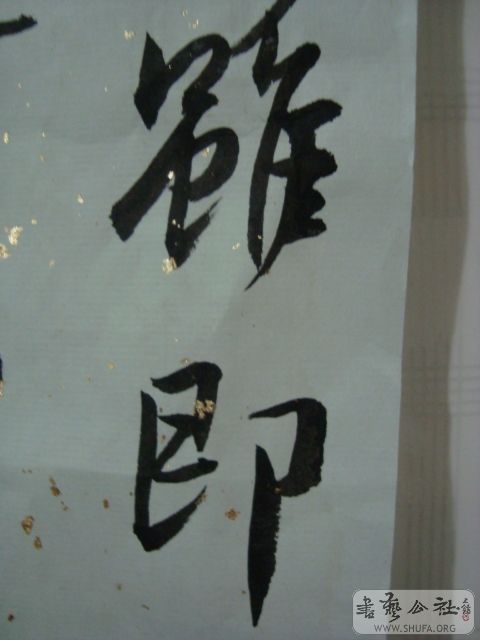 雖即
書藝公社
WWW.SHUFA.ORG